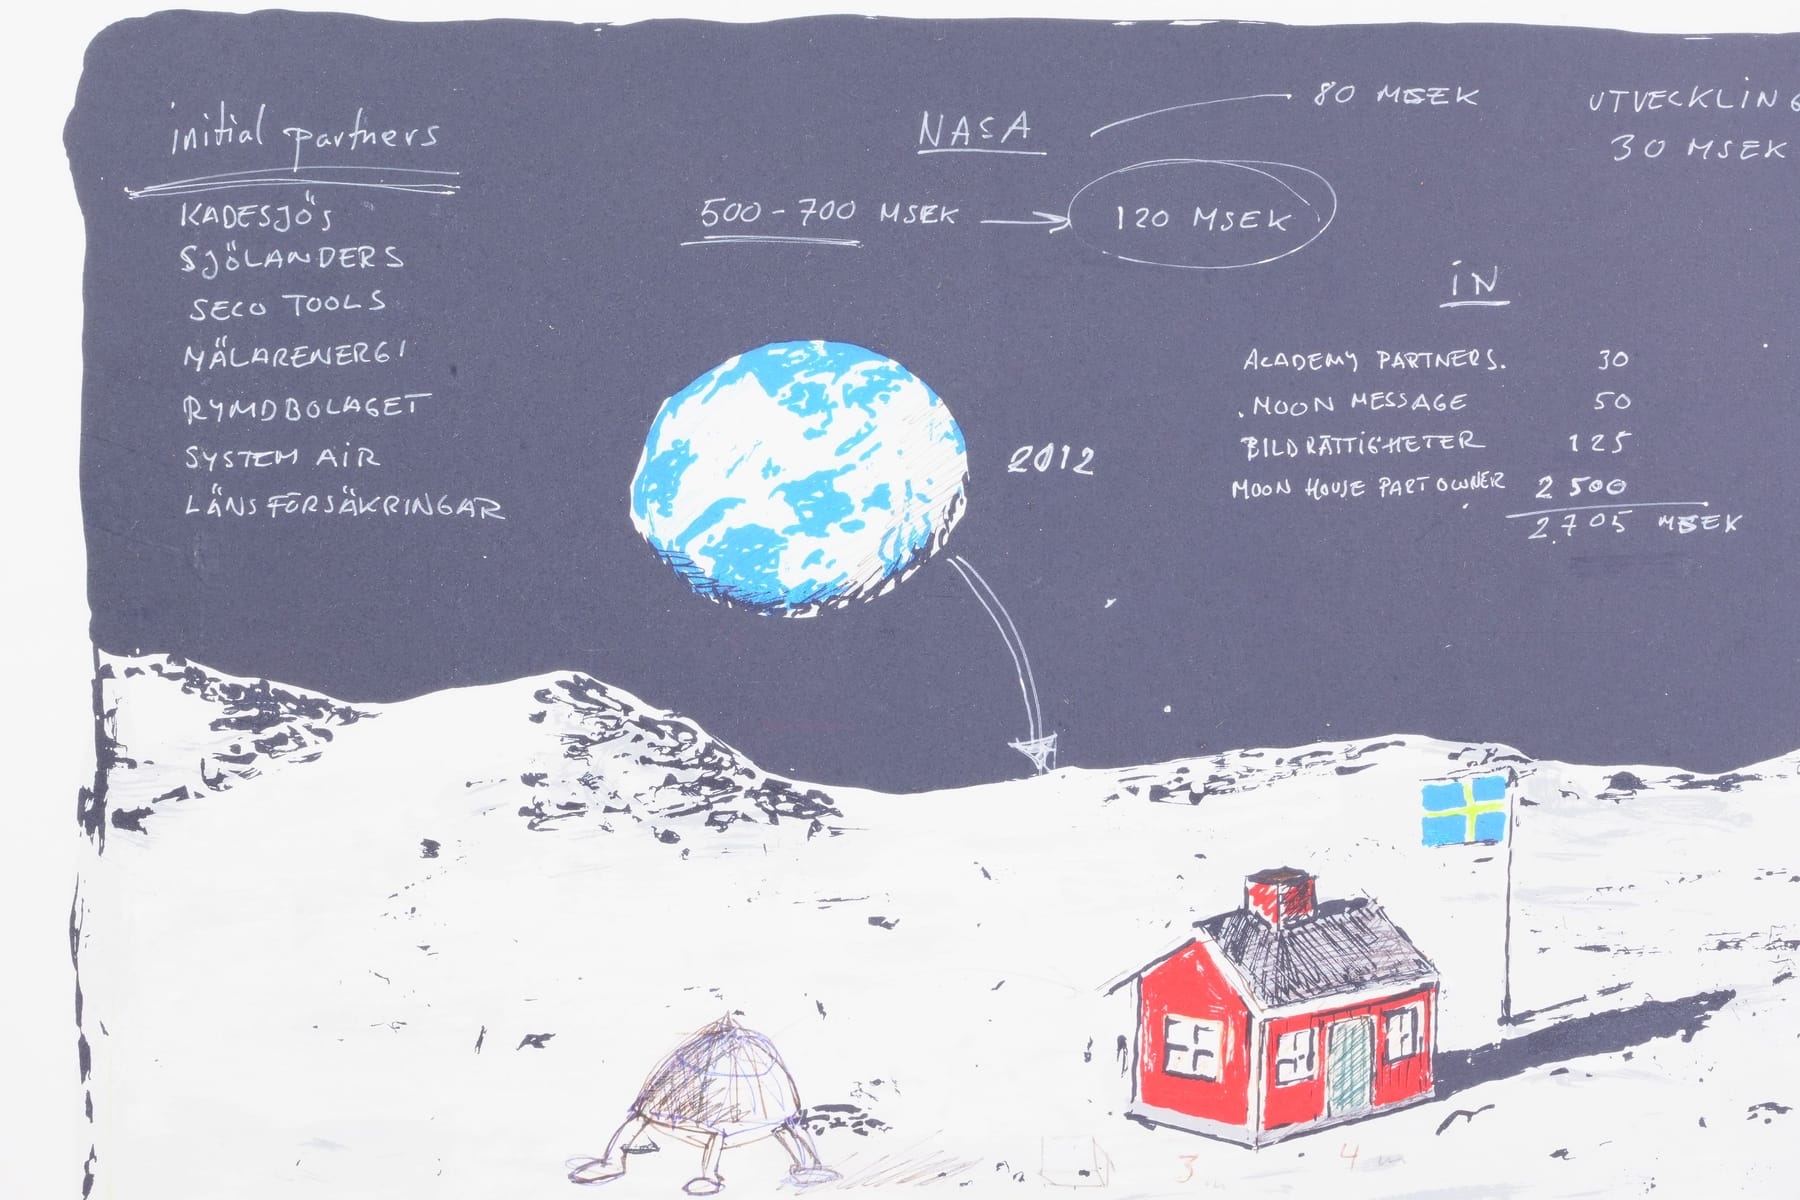 initial partners
KADESJÖS
SJÖLANDERS
SECO TOOLS
MÄLARENERGI
RYMDBOLAGET
SYSTEM AIR
LÄNSFÖRSÄKRINGAR
NASA
80 MSEK
500-700 MSEK
120 MSEK
UTVECKLING
30 MSEK
2012
IN
ACADEMY PARTNERS. 30
MOON MESSAGE 50
BILDRÄTTIGHETER 125
MOON HOUSE PART OWNER 2 500
2.705 MSEK
3 m
4 m